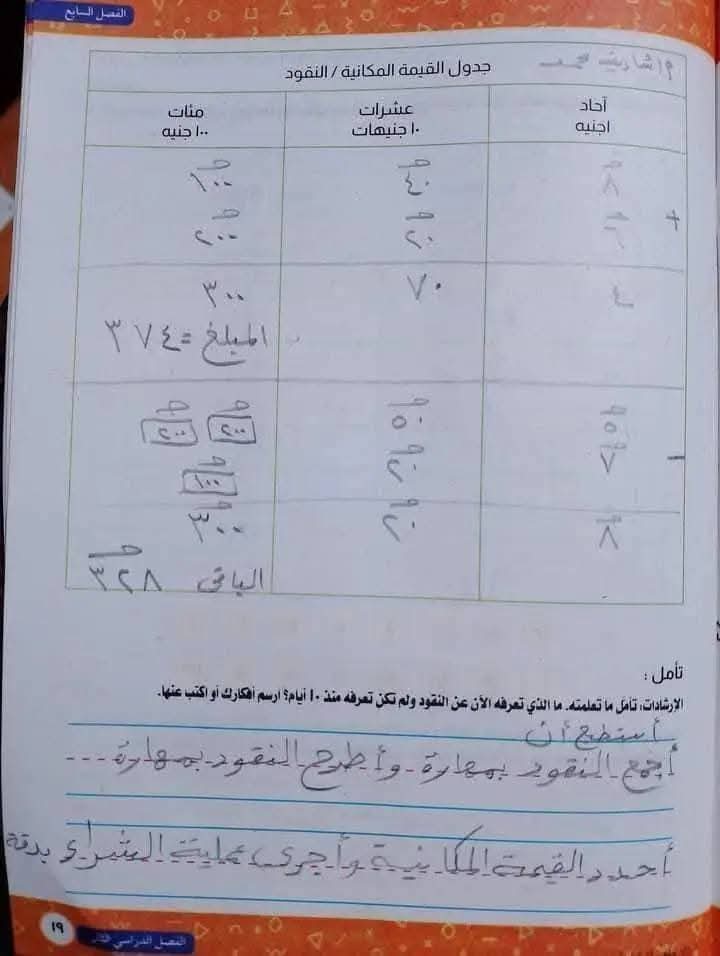 الفصل السابع
جدول القيمة المكانية / النقود
آحاد عشرات مئات
١جنيه ١٠ جنيهات ١٠٠ جنيه
٨ ج ٤٠ ج ١٠٠ ج
+ ٦ ج ٢٠ ج ٢٠٠ ج
٤ ٧٠ ٣٠٠
المبلغ = ٣٧٤
٥ ج ٥٠ ج ٢٠٠ ج ٢٠٠ ج
- ٧ ج ٢٠ ج ١٠٠ ج
٨ ٢٠ ج ٣٠٠ ج
الباقى ٣٢٨ ج
تأمل :
الإرشادات: تأمل ما تعلمته. ما الذي تعرفه الآن عن النقود ولم تكن تعرفه منذ ١٠ أيام؟ ارسم أفكارك أو اكتب عنها.
أستطيع أن
أجمع النقود بمهارة وأطرح النقود بمهارة
أحدد القيمة المكانية وأجرى عملية الشراء بدقة
١٩
الفصل الدراسي الثاني